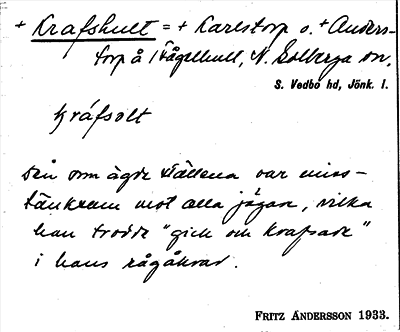 + Krafshult = + Karlstorp o. + Anders-
torp å Fågelhult, N. Solberga sn.
S. Vedbo hd, Jönk. l.
kráfsolt
Den som ägde ställena var miss-
tänksam mot alla jägare, vilka
han trodde "gick och krafsade"
i hans rågåkrar.
FRITZ ANDERSSON 1933.